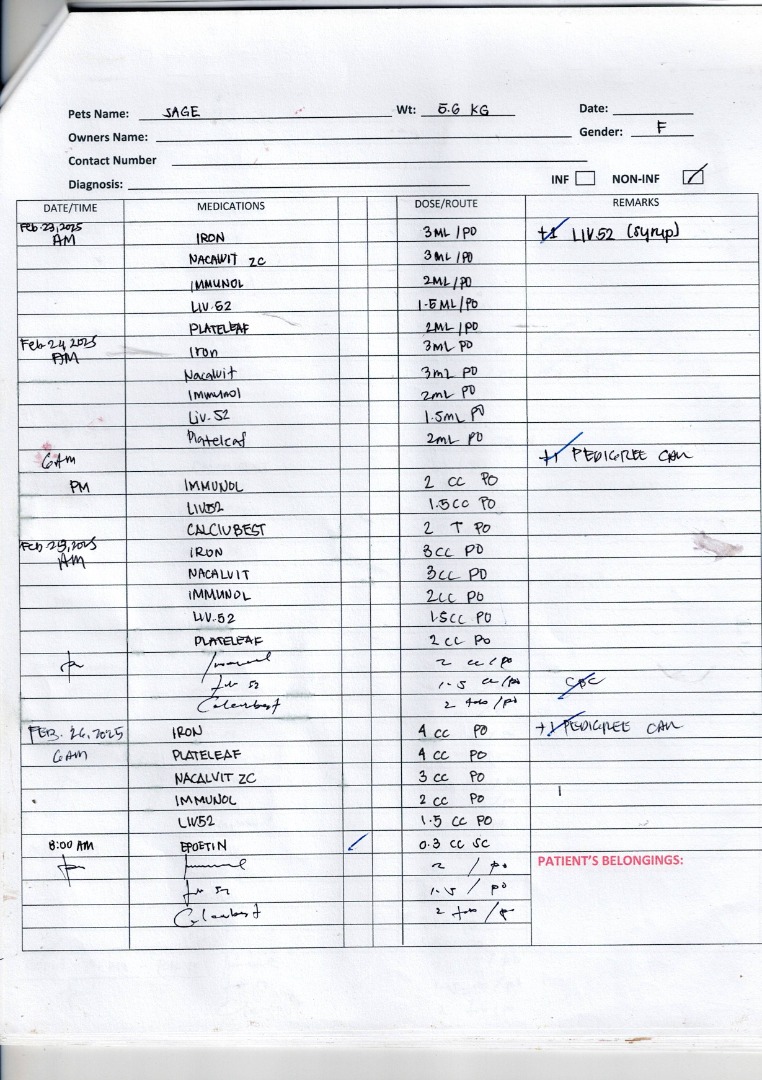 Pets Name: SAGE Wt: 5.6 KG Date:
Owners Name: Gender: F
Contact Number
Diagnosis: INF NON-INF
DATE/TIME MEDICATIONS DOSE/ROUTE REMARKS
Feb. 23, 2025
AM IRON 3 ML / PO +1 LIV.52 (syrup)
NACALVIT ZC 3 ML / PO
IMMUNOL 2ML / PO
LIV.52 1.5 ML / PO
PLATELEAF 2ML / PO
Feb. 24, 2025
AM Iron 3mL PO
Nacalvit 3mL PO
Immunol 2mL PO
Liv. 52 1.5mL PO
Plateleaf 2mL PO
6AM +1 PEDIGREE CAN
PM IMMUNOL 2 CC PO
LIV52 1.5 CC PO
CALCIUBEST 2 T PO
Feb 25, 2025
AM IRON 3 CC PO
NACALVIT 3 CC PO
IMMUNOL 2 CC PO
LIV.52 1.5 CC PO
PLATELEAF 2 CC PO
Immunol 2 cc / po
52 1.5 cc / po CBC
2 / po
FEB. 26, 2025 IRON 4 CC PO +1 PEDIGREE CAN
6AM PLATELEAF 4 CC PO
NACALVIT ZC 3 CC PO
IMMUNOL 2 CC PO
LIV52 1.5 CC PO
8:00 AM EPOETIN 0.3 CC SC
PATIENT'S BELONGINGS:
2 / po
52 1.5 / po
2